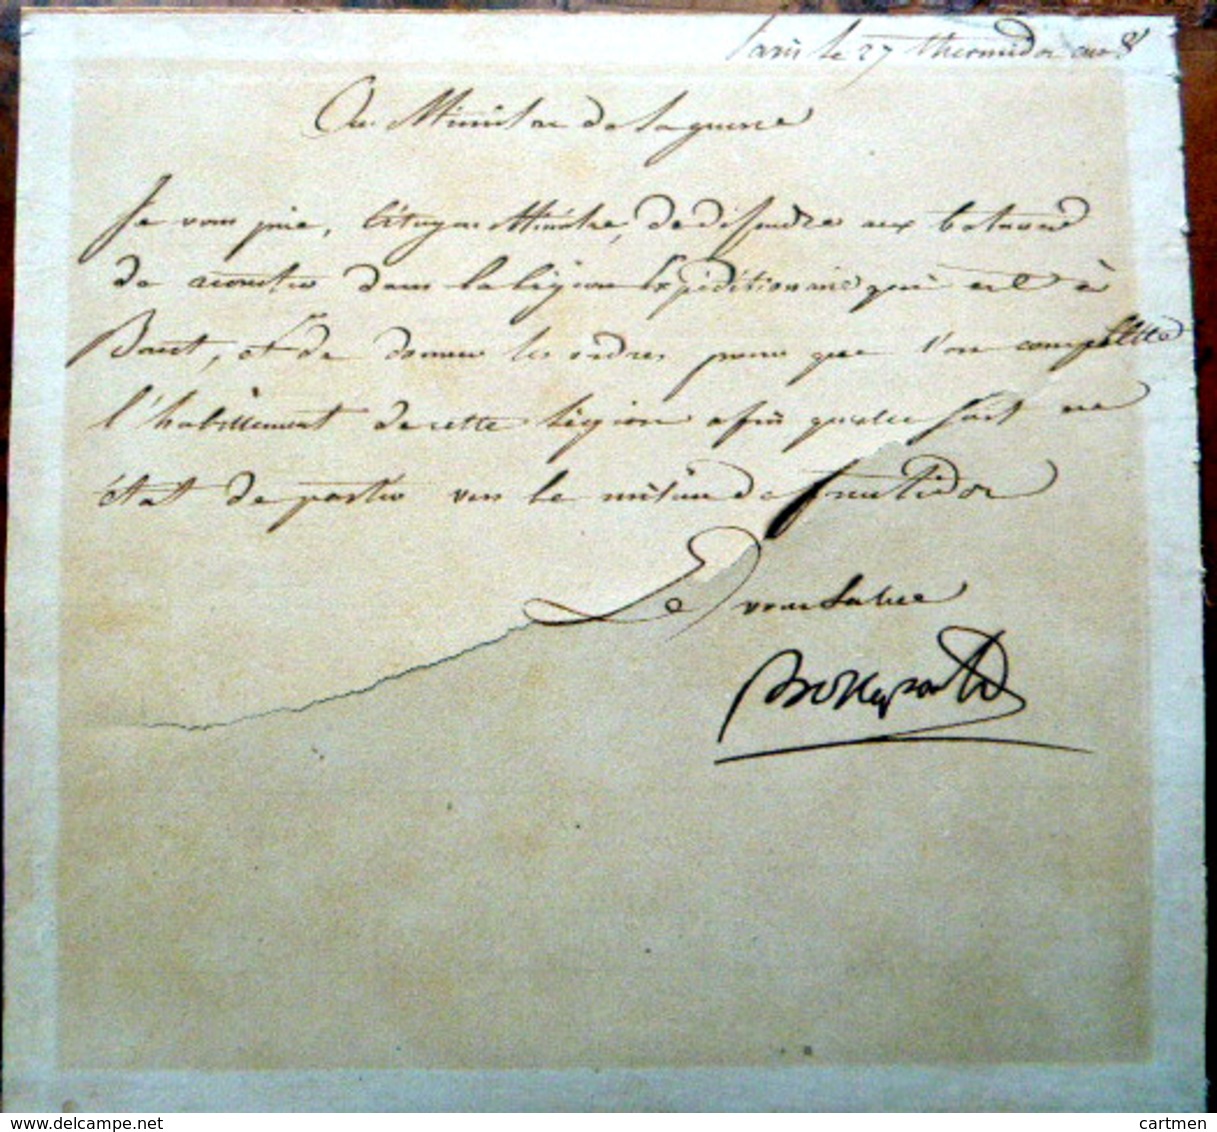 Paris le 27 thermidor an 8
Au Ministre de la guerre
Je vous prie, Citoyen Ministre, de défendre aux bataves
de recruter dans la légion Expéditionnaire qui est à
Brest, et de donner les ordres pour que l'on complette
l'habillement de cette légion afin qu'elle soit en
état de partir vers le milieu de fructidor
Je vous salue
Bonaparte
www.delcampe.net
cartmen